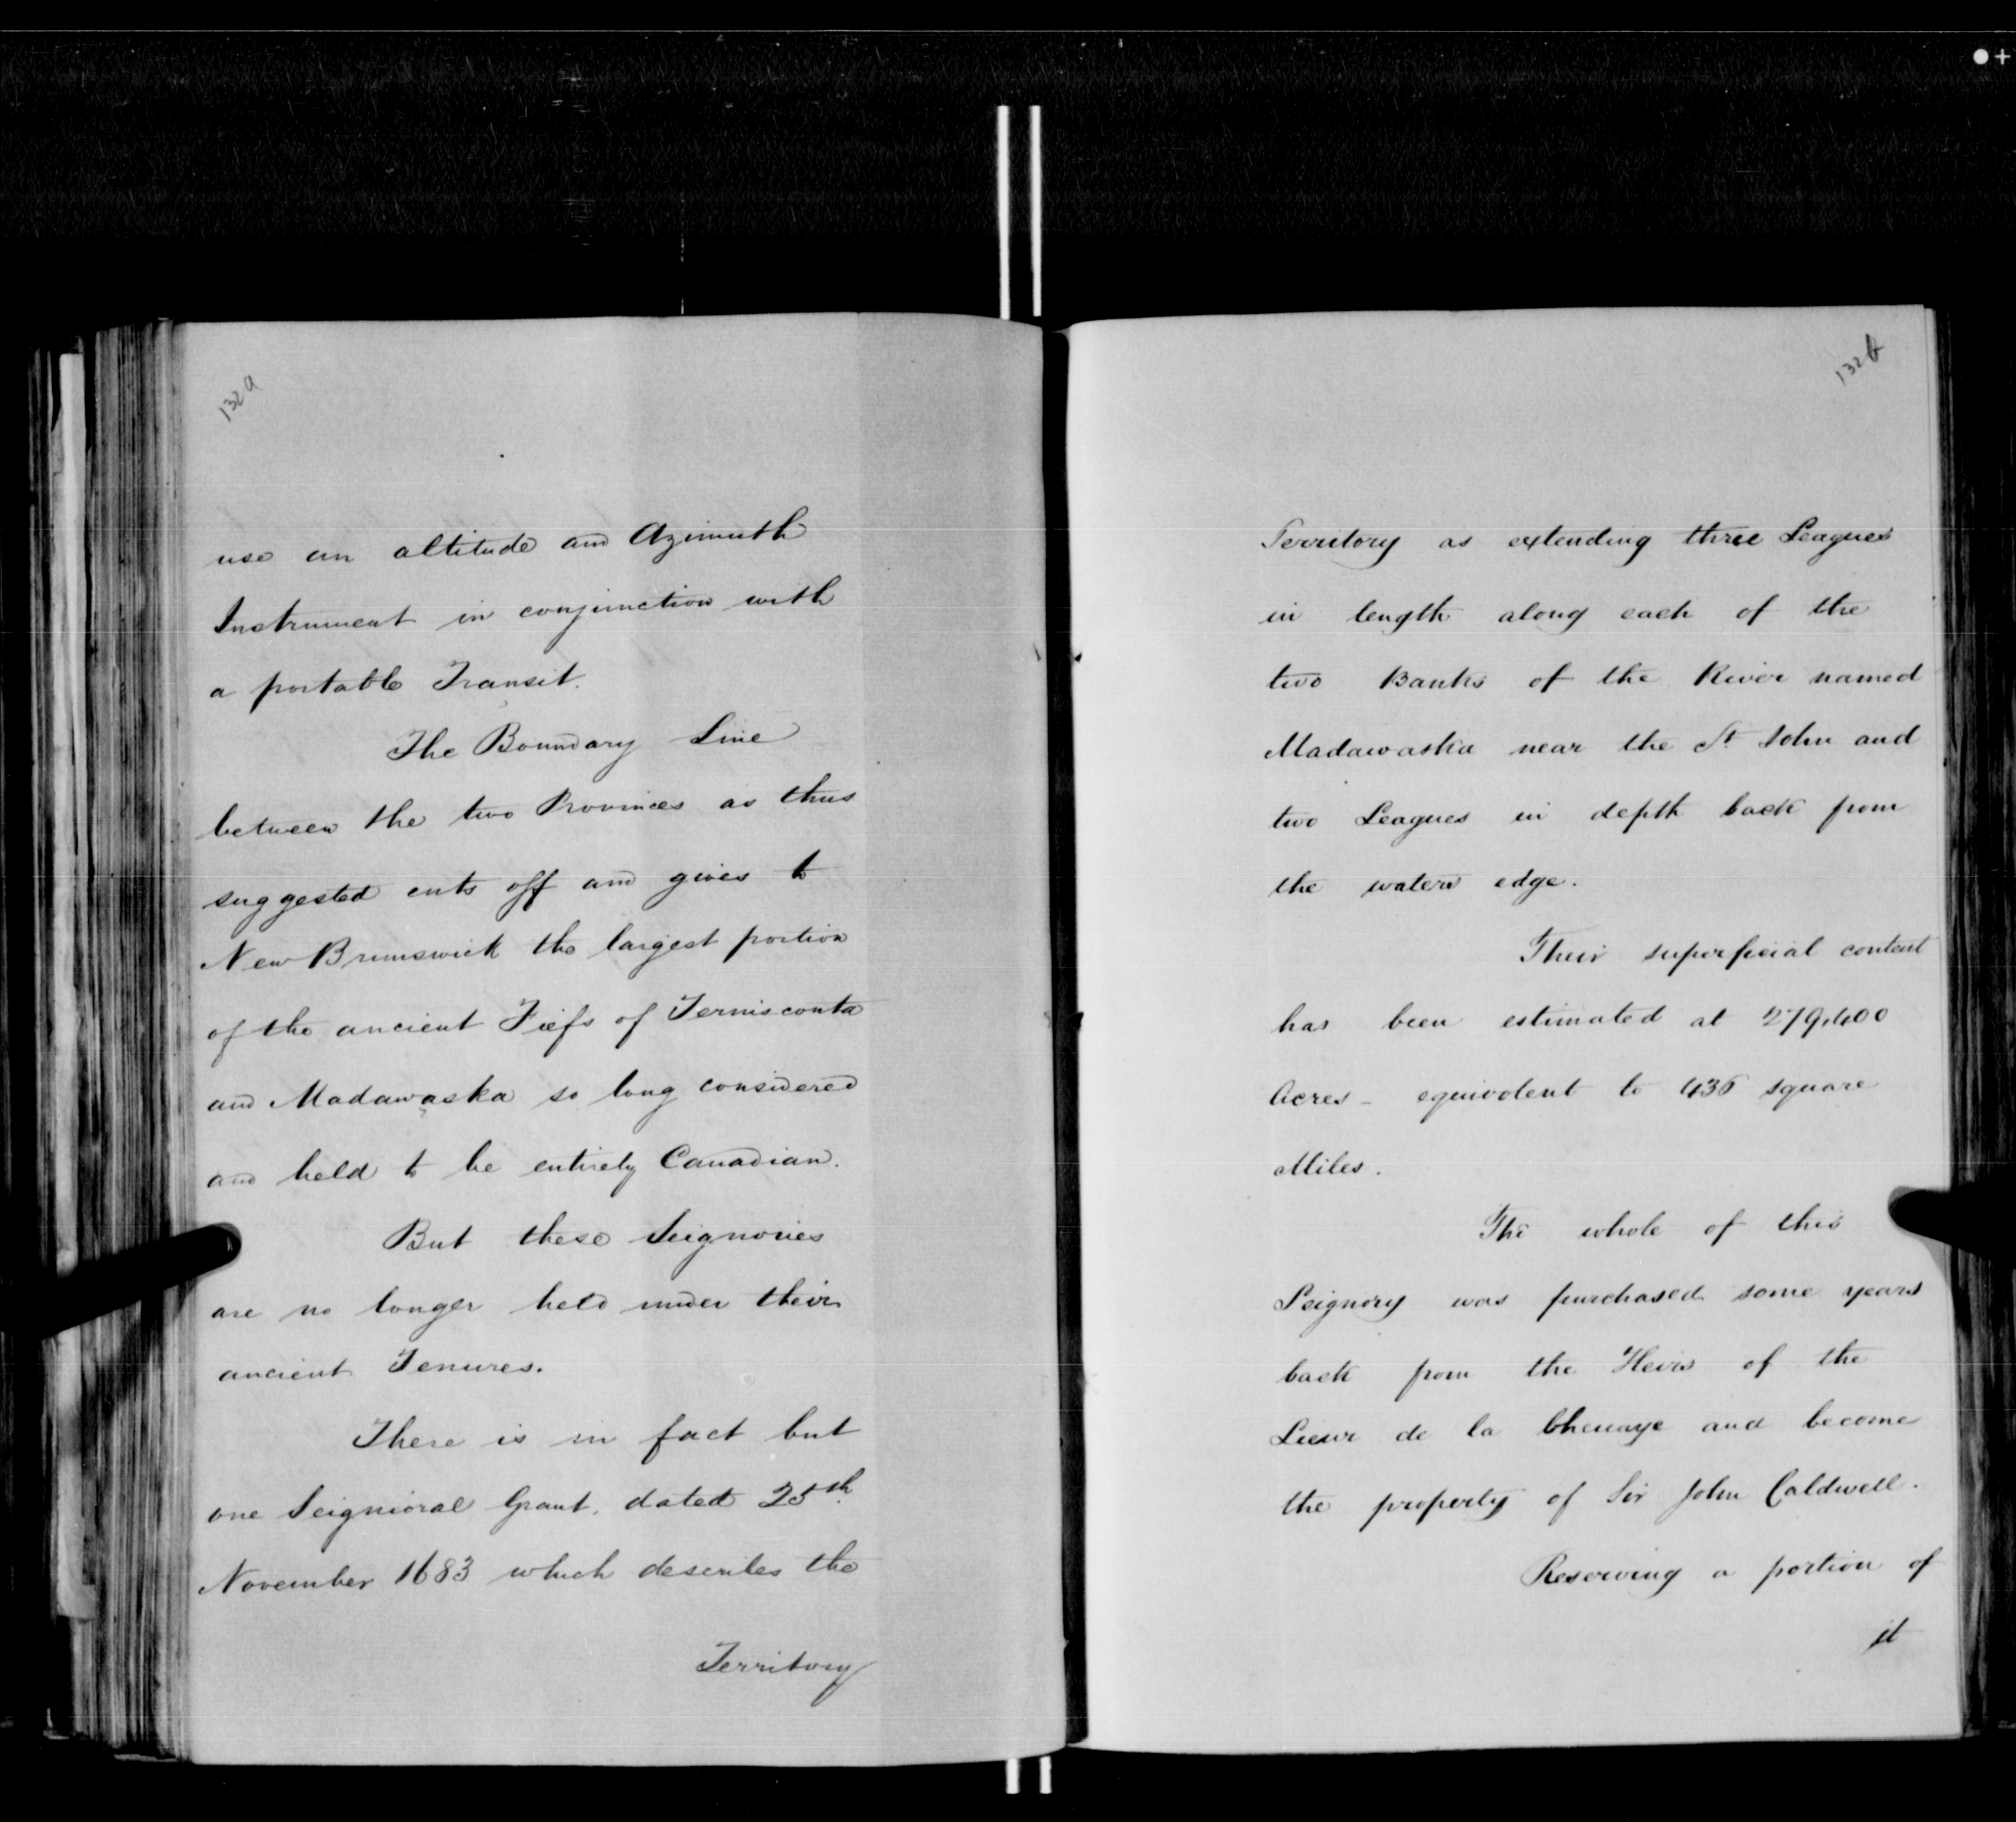 132a
use an altitude and Azimuth
Instrument in conjunction with
a portable Transit.
The Boundary Line
between the two Provinces as thus
suggested cuts off and gives to
New Brunswick the largest portion
of the ancient Fiefs of Temisconta
and Madawaska so long considered
and held to be entirely Canadian.
But these Seignories
are no longer held under their
ancient Tenures.
There is in fact but
one Seignioral Grant, dated 25th
November 1683 which describes the
Territory
132b
Territory as extending three Leagues
in length along each of the
two Banks of the River named
Madawaska near the St. John and
two Leagues in depth back from
the waters edge.
Their superficial content
has been estimated at 279,400
Acres - equivolent to 436 square
Miles.
The whole of this
Seignory was purchased some years
back from the Heirs of the
Sieur de la Chenaye and become
the property of Sir John Caldwell.
Reserving a portion of
it